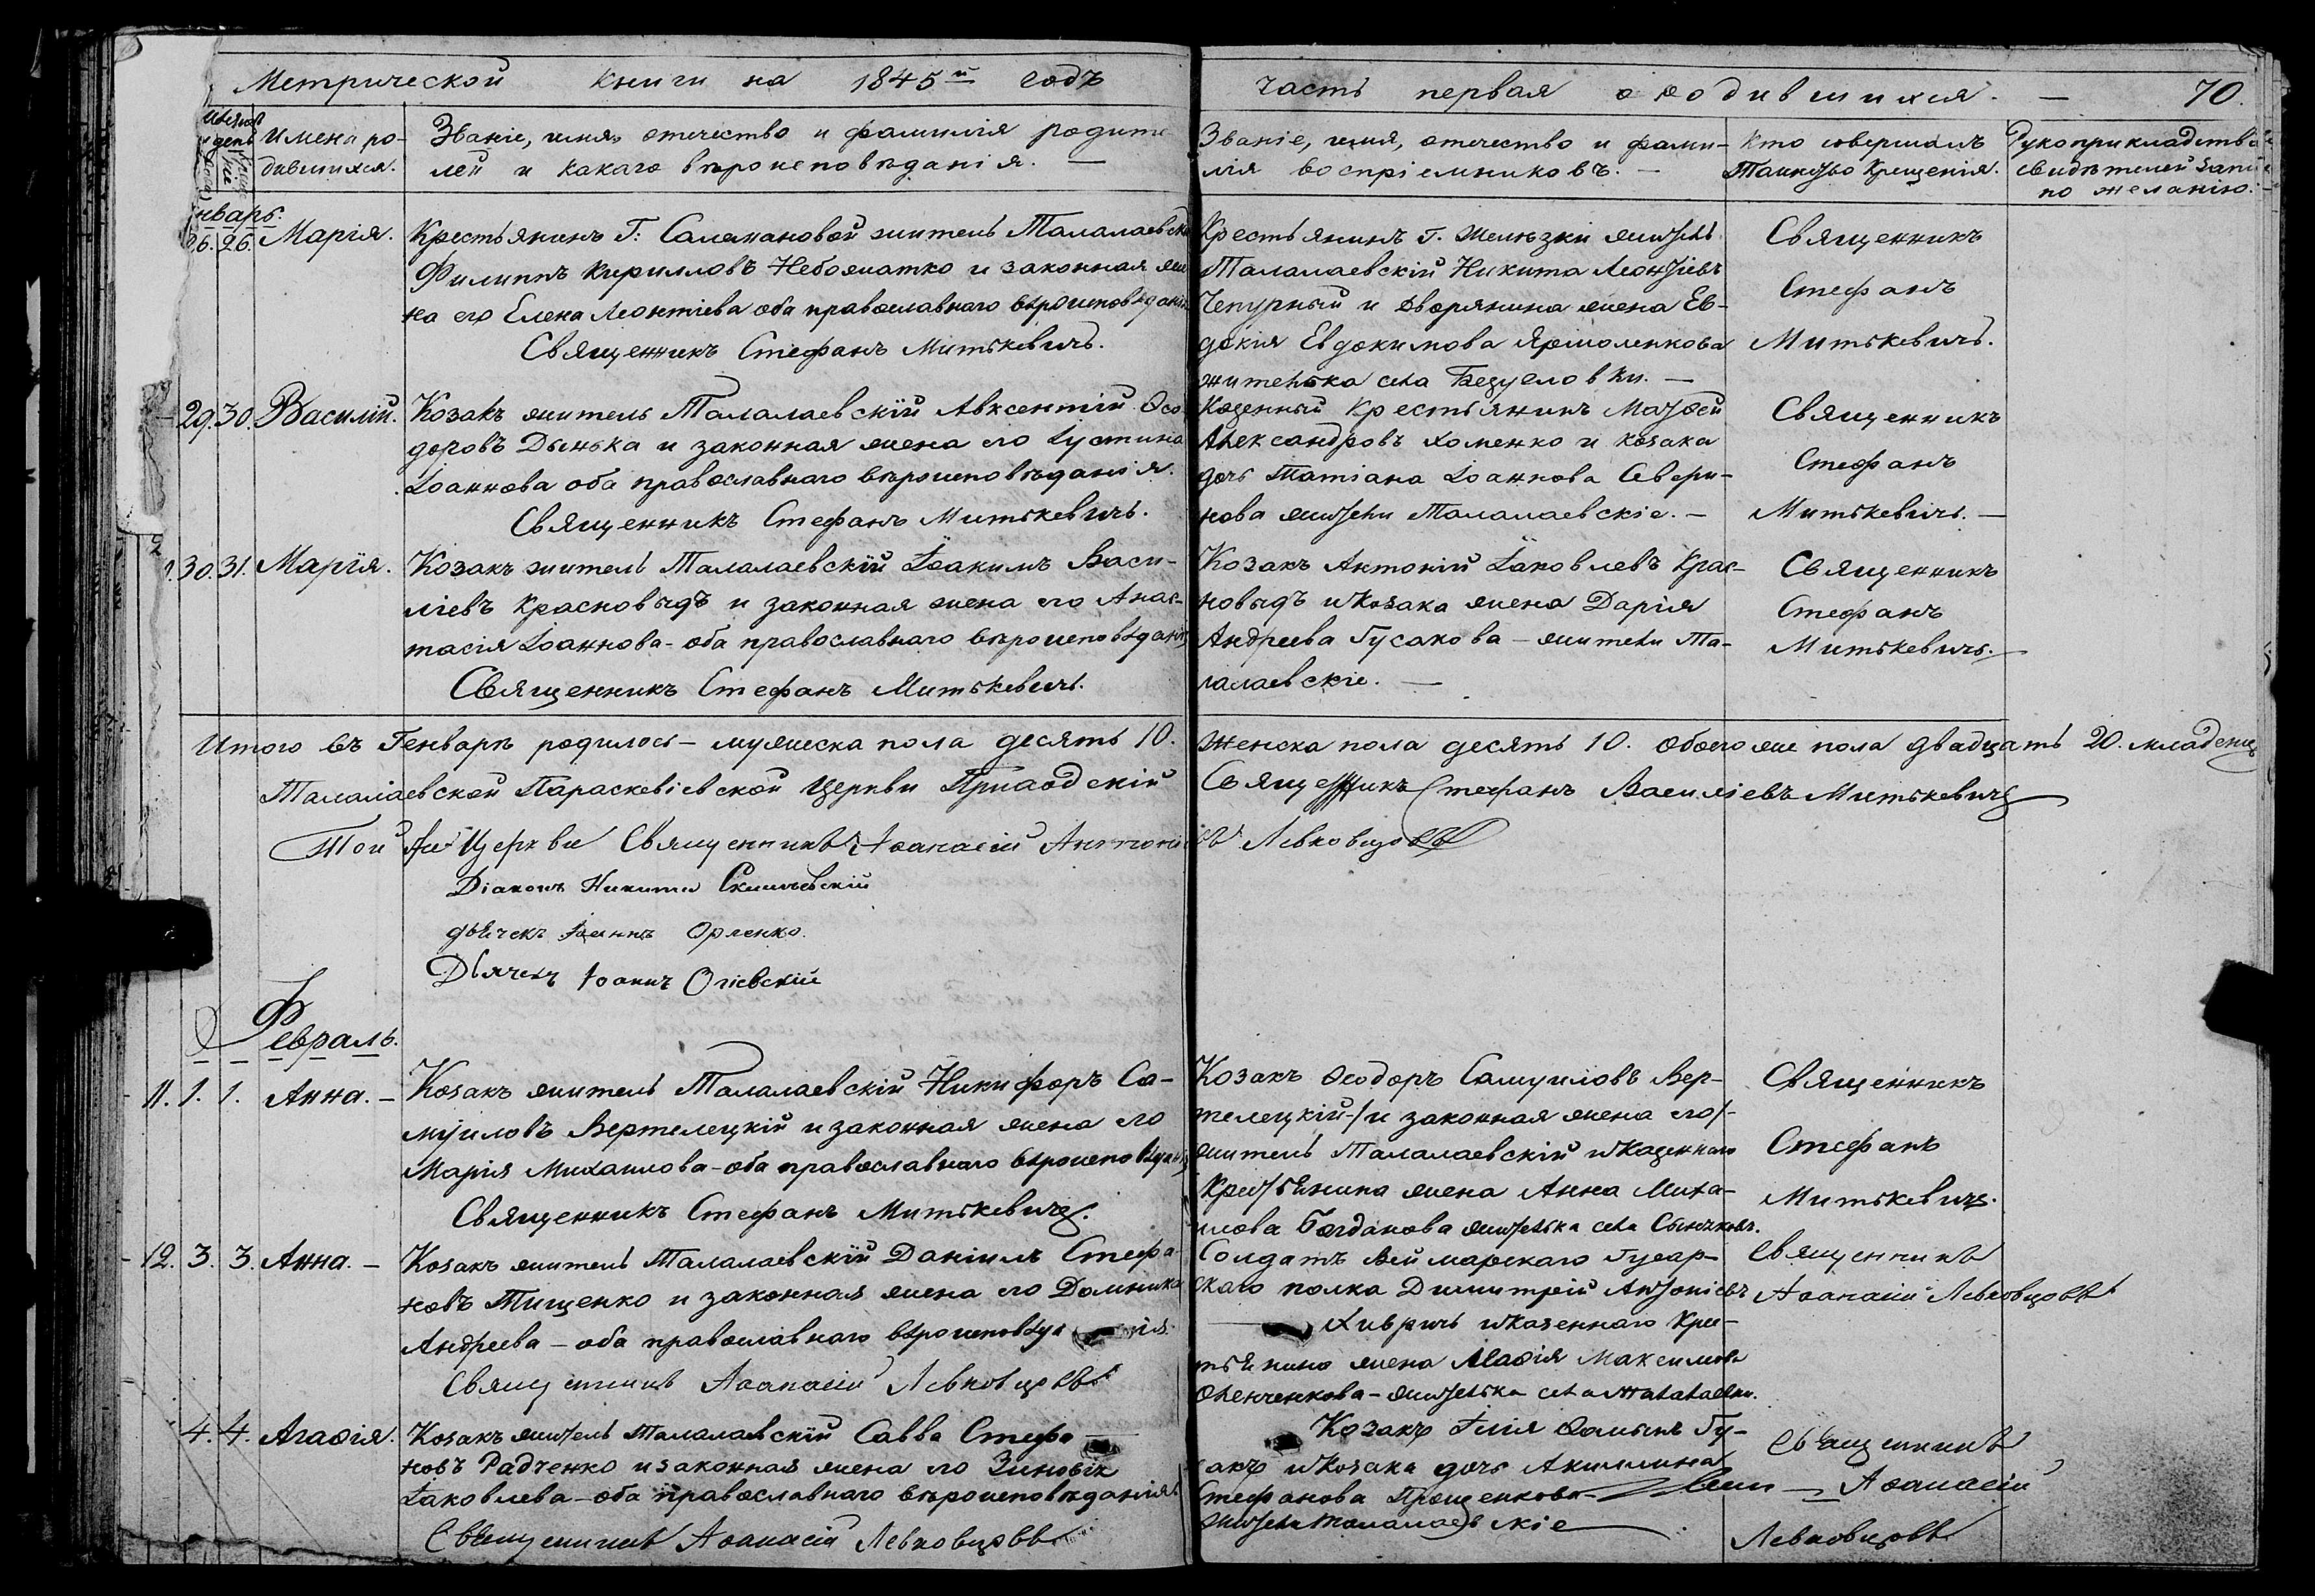 Метрической книги на 1845й годъ
часть первая о родившихся. — 70.
Имена ро-
дившихся.
Званіе, имя, отечество и фамилія родите
лей и какаго вѣроисповѣданія. —
Званіе, имя, отечество и фами-
лія воспріемниковъ. —
Кто совершалъ
Таинство Крещенія.
Рукоприкладство
свидѣтелей запи
по желанію.
нварь.
26. 26. Марія.
Крестьянинъ Г: Саламановой житель Талалаевск
Филиппъ Кирилловъ Небожатко и законная же
на его Елена Леонтіева оба православнаго вѣроисповѣдані
Священникъ Стефанъ Митькевичъ.
Крестьянинъ Г. Желѣзки житель
Талалаевскій Никита Леонтіевъ
Чепурный и дворянина жена Ев-
докія Евдокимова Ярмоленкова
жителька села Безуеловки. —
Священникъ
Стефанъ
Митькевичъ.
29. 30. Василій.
Козакъ житель Талалаевскій Авксентій Ѳео
доровъ Дынька и законная жена его Іустина
Іоаннова оба православнаго вѣроисповѣданія.
Священникъ Стефанъ Митькевичъ.
Казенный крестьянинъ Матѳей
Александровъ Хоменко и козака
дочь Татіана Іоаннова Севери-
нова жители Талалаевскіе. —
Священникъ
Стефанъ
Митькевичъ. —
30. 31. Марія.
Козакъ житель Талалаевскій Іоакимъ Васи-
ліевъ Красновыдъ и законная жена его Анас-
тасія Іоаннова - оба православнаго вѣроисповѣдані
Священникъ Стефанъ Митькевичъ.
Козакъ Антоній Іаковлевъ Крас-
новыдъ и козака жена Дарія
Андреева Гусакова — жители Та-
лалаевскіе. —
Священникъ
Стефанъ
Митькевичъ. —
Итого въ Генварѣ родилось — мужеска пола десять 10.
Женска пола десять 10. обоего же пола двадцать 20. младенц
Талалаевской Параскевіевской Церкви Приходскій
Священникъ Стефанъ Василіевъ Митькевичъ
Той же Церкви Священникъ Аѳанасій Антоні
евъ Левковцовъ
Діаконъ Никита
дьячекъ Іоаннъ Орленко.
Дьячекъ Іоаннъ Огіевскій
Февраль.
11. 1. 1. Анна. —
Козакъ житель Талалаевскій Никифоръ Са-
муиловъ Вертелецкій и законная жена его
Марія Михаилова — оба православнаго вѣроисповѣдан
Священникъ Стефанъ Митькевичъ.
Козакъ Ѳеодоръ Самуиловъ Вер-
телецкій /и законная жена его/-
житель Талалаевскій и казеннаго
крестьянина жена Анна Миха-
илова Богданова жителька села
Священникъ
Стефанъ
Митькевичъ.
12. 3. 3. Анна. —
Козакъ житель Талалаевскій Даніилъ Стефа-
новъ Тищенко и законная жена его Домника
Андреева — оба православнаго вѣроисповѣда нія.
Священникъ Аѳанасій Левковцовъ
Солдатъ Веймарскаго Гусар-
скаго полка Димитрій Антоніевъ
Хивричъ и казеннаго крес-
тьянина жена Агафія Максимова
жителька села Талалаевки.
Священникъ
Аѳанасій Левковцовъ
4. 4. Агафія.
Козакъ житель Талалаевскій Савва Стефа —
новъ Радченко и законная жена его Зиновія
Іаковлева — оба православнаго вѣроисповѣданія.
Священникъ Аѳанасій Левковцовъ
Козакъ Илія Ѳоминъ Гу-
сакъ и козака дочь Акиллина
Стефанова Прощенкова —
жители Талалаевскіе
Священникъ
Аѳанасій
Левковцовъ